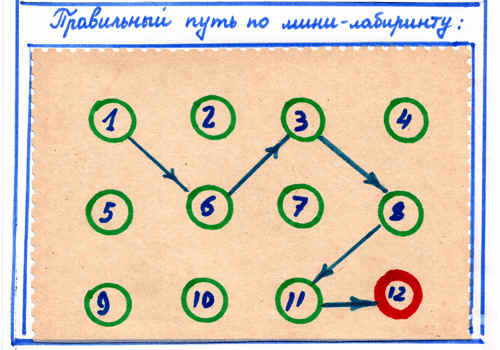 Правильный путь по мини-лабиринту:
1 2 3 4
5 6 7 8
9 10 11 12